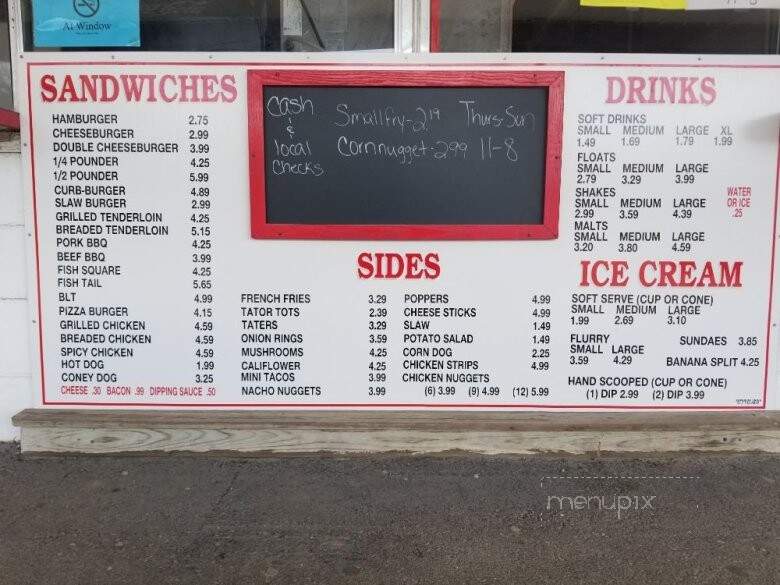 At Window
SANDWICHES
HAMBURGER 2.75
CHEESEBURGER 2.99
DOUBLE CHEESEBURGER 3.99
1/4 POUNDER 4.25
1/2 POUNDER 5.99
CURB-BURGER 4.89
SLAW BURGER 2.99
GRILLED TENDERLOIN 4.25
BREADED TENDERLOIN 5.15
PORK BBQ 4.25
BEEF BBQ 3.99
FISH SQUARE 4.25
FISH TAIL 5.65
BLT 4.99
PIZZA BURGER 4.15
GRILLED CHICKEN 4.59
BREADED CHICKEN 4.59
SPICY CHICKEN 4.59
HOT DOG 1.99
CONEY DOG 3.25
CHEESE .30 BACON .99 DIPPING SAUCE .50
Cash & local Checks
Small fry - 2.19
Corn nugget - 2.99
Thurs-Sun
11-8
SIDES
FRENCH FRIES 3.29
TATOR TOTS 2.39
TATERS 3.29
ONION RINGS 3.59
MUSHROOMS 4.25
CALIFLOWER 4.25
MINI TACOS 3.99
NACHO NUGGETS 3.99
POPPERS 4.99
CHEESE STICKS 4.99
SLAW 1.49
POTATO SALAD 1.49
CORN DOG 2.25
CHICKEN STRIPS 4.99
CHICKEN NUGGETS
(6) 3.99 (9) 4.99 (12) 5.99
DRINKS
SOFT DRINKS
SMALL MEDIUM LARGE XL
1.49 1.69 1.79 1.99
FLOATS
SMALL MEDIUM LARGE
2.79 3.29 3.99
SHAKES
SMALL MEDIUM LARGE
2.99 3.59 4.39
MALTS
SMALL MEDIUM LARGE
3.20 3.80 4.59
WATER
OR ICE
.25
ICE CREAM
SOFT SERVE (CUP OR CONE)
SMALL MEDIUM LARGE
1.99 2.69 3.10
FLURRY
SMALL LARGE
3.59 4.29
SUNDAES 3.85
BANANA SPLIT 4.25
HAND SCOOPED (CUP OR CONE)
(1) DIP 2.99 (2) DIP 3.99
menupix